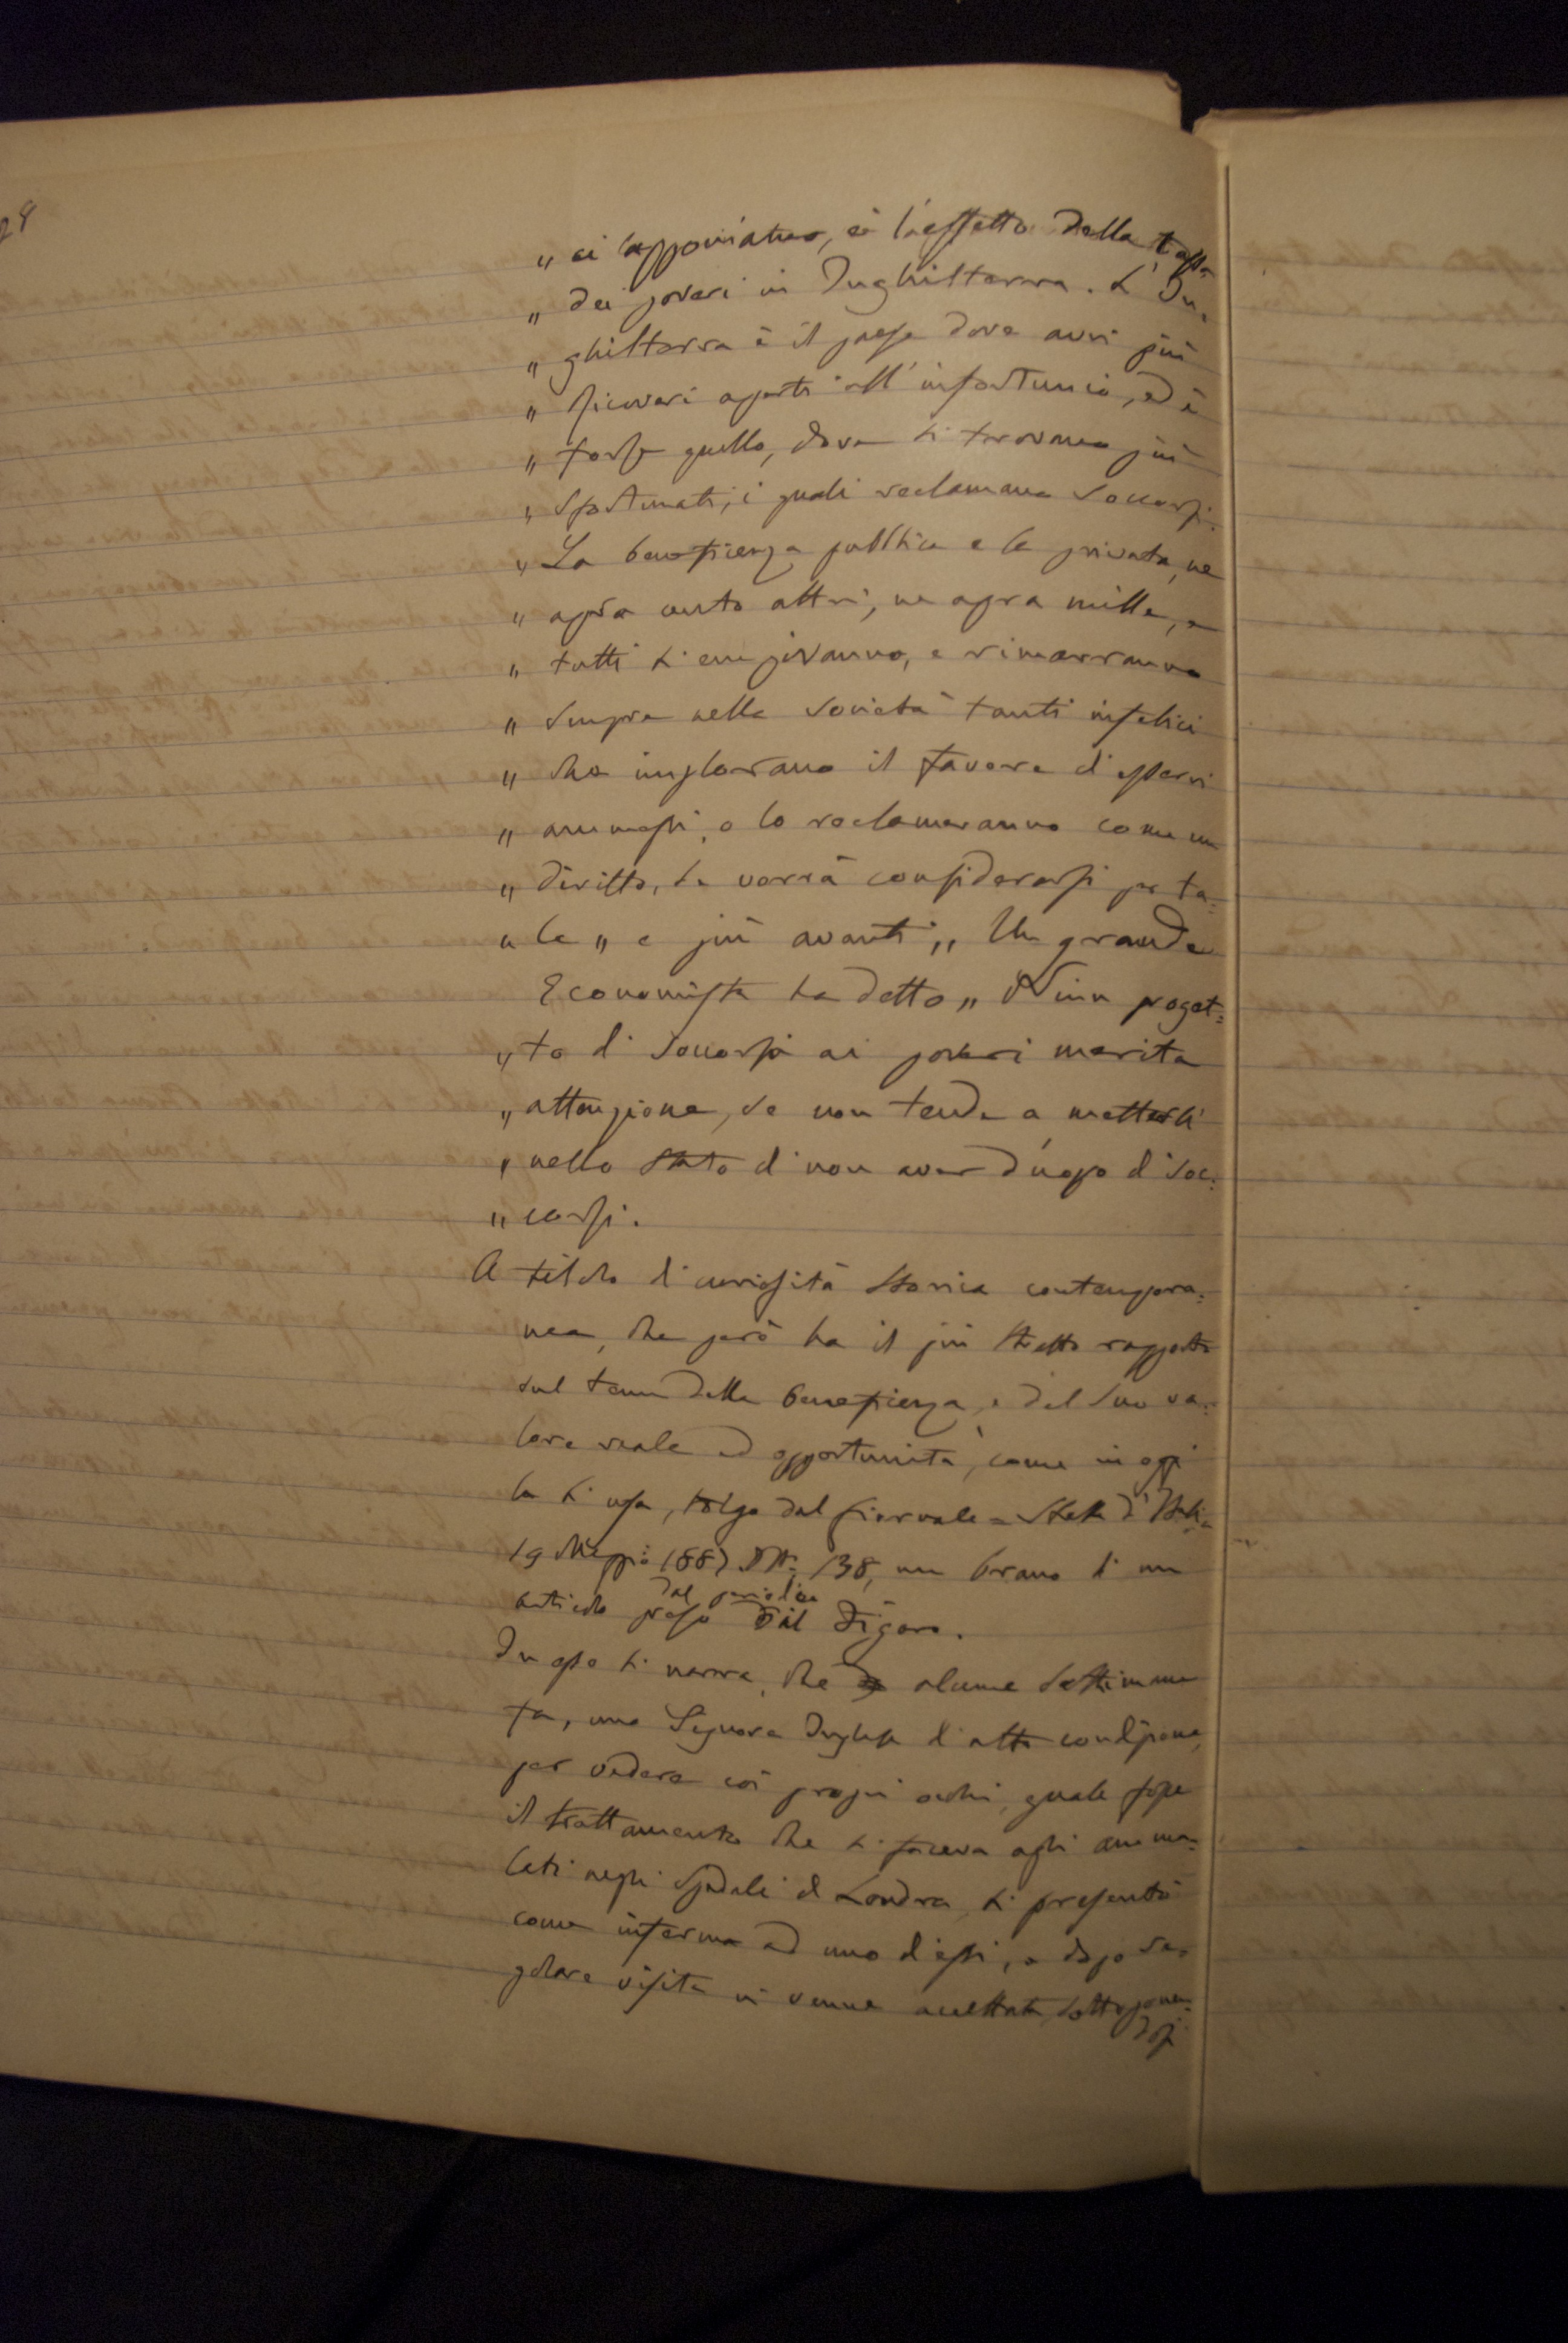 28
„ ci apponiamo, è l'effetto della tassa
„ dei poveri in Inghilterra. L' In=
„ ghilterra è il paese dove avvi più
„ ricoveri aperti all' infortunio, ed è
„ forse quello, dove si trovano più
„ sfortunati, i quali reclamano soccorsi.
„ La beneficenza pubblica e la privata, ne
„ apra cento altri, ne apra mille, e
„ tutti si empiranno, e rimarranno
„ sempre nella società tanti infelici
„ che implorano il favore di esservi
„ ammessi, o lo reclameranno come un
„ diritto, se vorrà considerarsi per ta=
„ le „ e più avanti „ Un grande
Economista ha detto „ Niun proget=
„ to di soccorsi ai poveri merita
„ attenzione, se non tende a metterli
„ nello stato di non aver d'uopo di soc=
„ corsi.
A titolo di curiosità storica contempora=
nea, che però ha il più stretto rapporto
sul tema della beneficenza, e del suo va=
lore reale ed opportunità, come in oggi
la si usa, tolgo dal giornale = Stella d'Italia
19 Maggio 1887 N° 138, un brano di un
articolo preso dal periodico il Figaro.
In esso si narra, che alcune settimane
fa, una Signora Inglese di alta condizione,
per vedere coi propri occhi, quale fosse
il trattamento che si faceva agli amma=
lati negli Spedali di Londra, si presentò
come inferma ad uno di essi, e dopo re=
golare visita vi venne accettata, sottoponen=
dosi